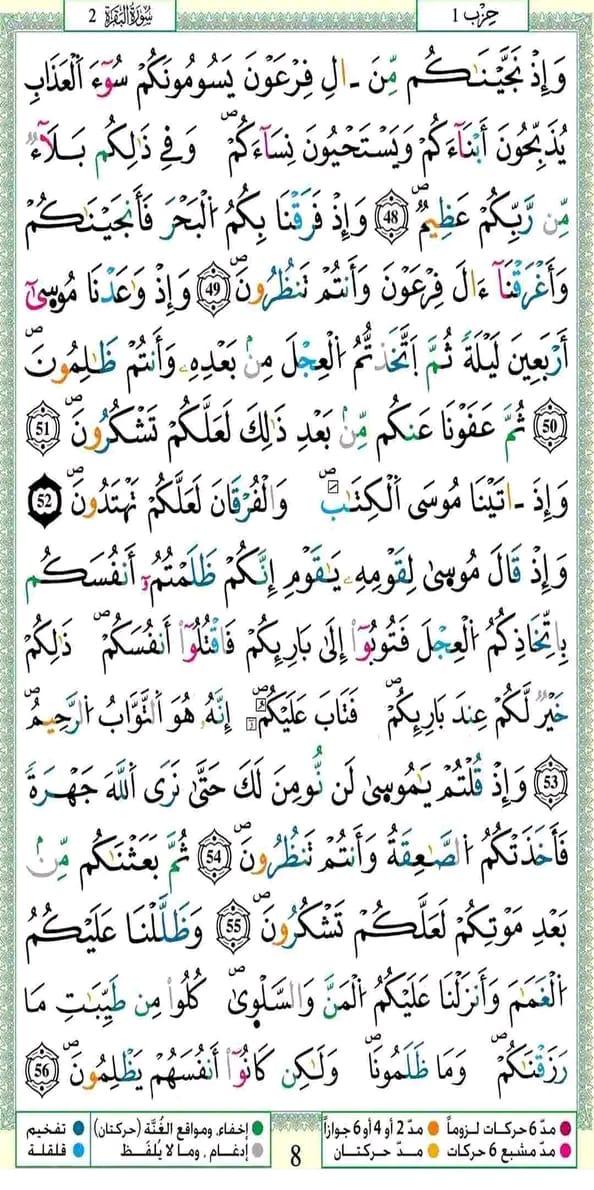 حِزْب 1
سُورَةُ الْبَقَرَة 2
وَإِذْ نَجَّيْنَٰكُم مِّنَ ـَالِ فِرْعَوْنَ يَسُومُونَكُمْ سُوٓءَ اَ۬لْعَذَابِ
يُذَبِّحُونَ أَبْنَآءَكُمْ وَيَسْتَحْيُونَ نِسَآءَكُمْۖ وَفِے ذَٰلِكُم بَلَآءٞ
مِّن رَّبِّكُمْ عَظِيمٞۖ 48 وَإِذْ فَرَقْنَا بِكُمُ اُ۬لْبَحْرَ فَأَنجَيْنَٰكُمْ
وَأَغْرَقْنَآ ءَالَ فِرْعَوْنَ وَأَنتُمْ تَنظُرُونَۖ 49 وَإِذْ وَٰعَدْنَا مُوس۪ىٰٓ
أَرْبَعِينَ لَيْلَةٗ ثُمَّ اَ۪تَّخَذتُّمُ اُ۬لْعِجْلَ مِنۢ بَعْدِهِۦ وَأَنتُمْ ظَٰلِمُونَۖ
50 ثُمَّ عَفَوْنَا عَنكُم مِّنۢ بَعْدِ ذَٰلِكَ لَعَلَّكُمْ تَشْكُرُونَۖ 51
وَإِذَ ـاتَيْنَا مُوسَى اَ۬لْكِتَٰبَۖ وَالْفُرْقَانَ لَعَلَّكُمْ تَهْتَدُونَۖ 52
وَإِذْ قَالَ مُوس۪ىٰ لِقَوْمِهِۦ يَٰقَوْمِ إِنَّكُمْ ظَلَمْتُمُۥٓ أَنفُسَكُم
بِاتِّخَاذِكُمُ اُ۬لْعِجْلَ فَتُوبُوٓاْ إِلَىٰ بَارِئِكُمْ فَاقْتُلُوٓاْ أَنفُسَكُمْۖ ذَٰلِكُمْ
خَيْرٞ لَّكُمْ عِندَ بَارِئِكُمْۖ فَتَابَ عَلَيْكُمُۥٓۖ إِنَّهُۥ هُوَ اَ۬لتَّوَّابُ اُ۬لرَّحِيمُۖ
53 وَإِذْ قُلْتُمْ يَٰمُوس۪ىٰ لَن نُّومِنَ لَكَ حَتَّىٰ نَرَى اَ۬للَّهَ جَهْرَةٗ
فَأَخَذَتْكُمُ اُ۬لصَّٰعِقَةُ وَأَنتُمْ تَنظُرُونَۖ 54 ثُمَّ بَعَثْنَٰكُم مِّنۢ
بَعْدِ مَوْتِكُمْ لَعَلَّكُمْ تَشْكُرُونَۖ 55 وَظَلَّلْنَا عَلَيْكُمُ
اُ۬لْغَمَٰمَ وَأَنزَلْنَا عَلَيْكُمُ اُ۬لْمَنَّ وَالسَّلْو۪ىٰۖ كُلُواْ مِن طَيِّبَٰتِ مَا
رَزَقْنَٰكُمْۖ وَمَا ظَلَمُونَاۖ وَلَٰكِن كَانُوٓاْ أَنفُسَهُمْ يَظْلِمُونَۖ 56
مدّ 6 حركات لـزوماً مدّ 2 أو 4 أو 6 جوازاً إخفاء، ومواقع الغُنَّة (حركتان) تفخيم
مدّ مشبع 6 حركات مدّ حركتان إدغام، وما لا يُلفَظ قلقلة
8